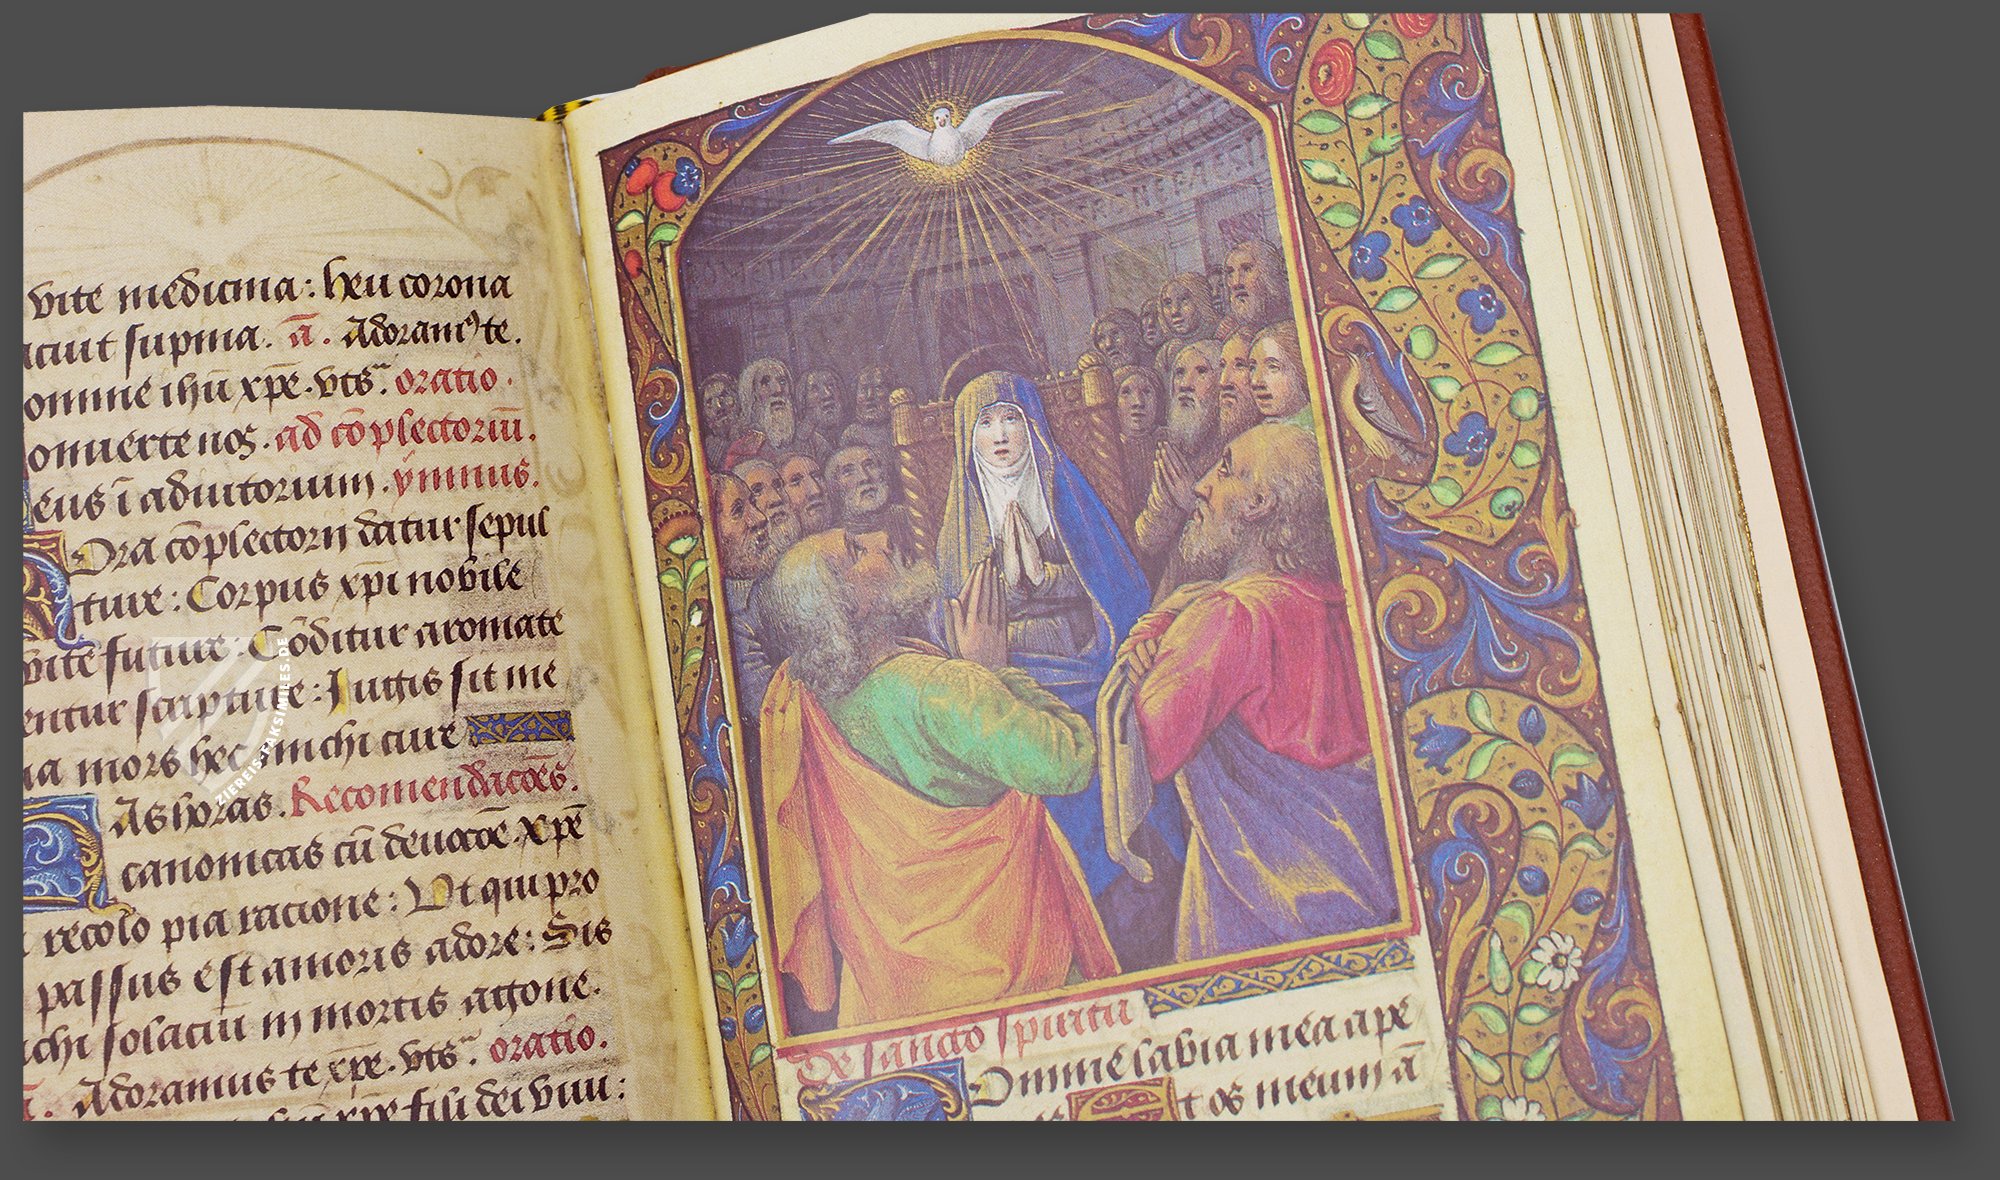 vite medicina: heu corona
ciut supina. a. Adoram9 te.
omine ihu xpe. vts. oratio.
onuerte nos. ad coplectoriu.
eus i adiutorium. ymnus.
Ora coplectorij datur sepul
ture: Corpus xpi nobile
vite future: Coditur aromate
entur scripture: Iugis sit me
a mors hec michi cure
As horas. Recomendacoes.
canonicas cu deuocoe xpe
recolo pia racione: Ut qui pro
passus est amoris adore: Sis
chi solaciu in mortis agone.
Adoramus te xpe. vts. oratio.
xpe fili dei viui:
ZIEREIS-FAKSIMILES.DE
De sancto spiritu
Domine labia mea ape
t os meum a